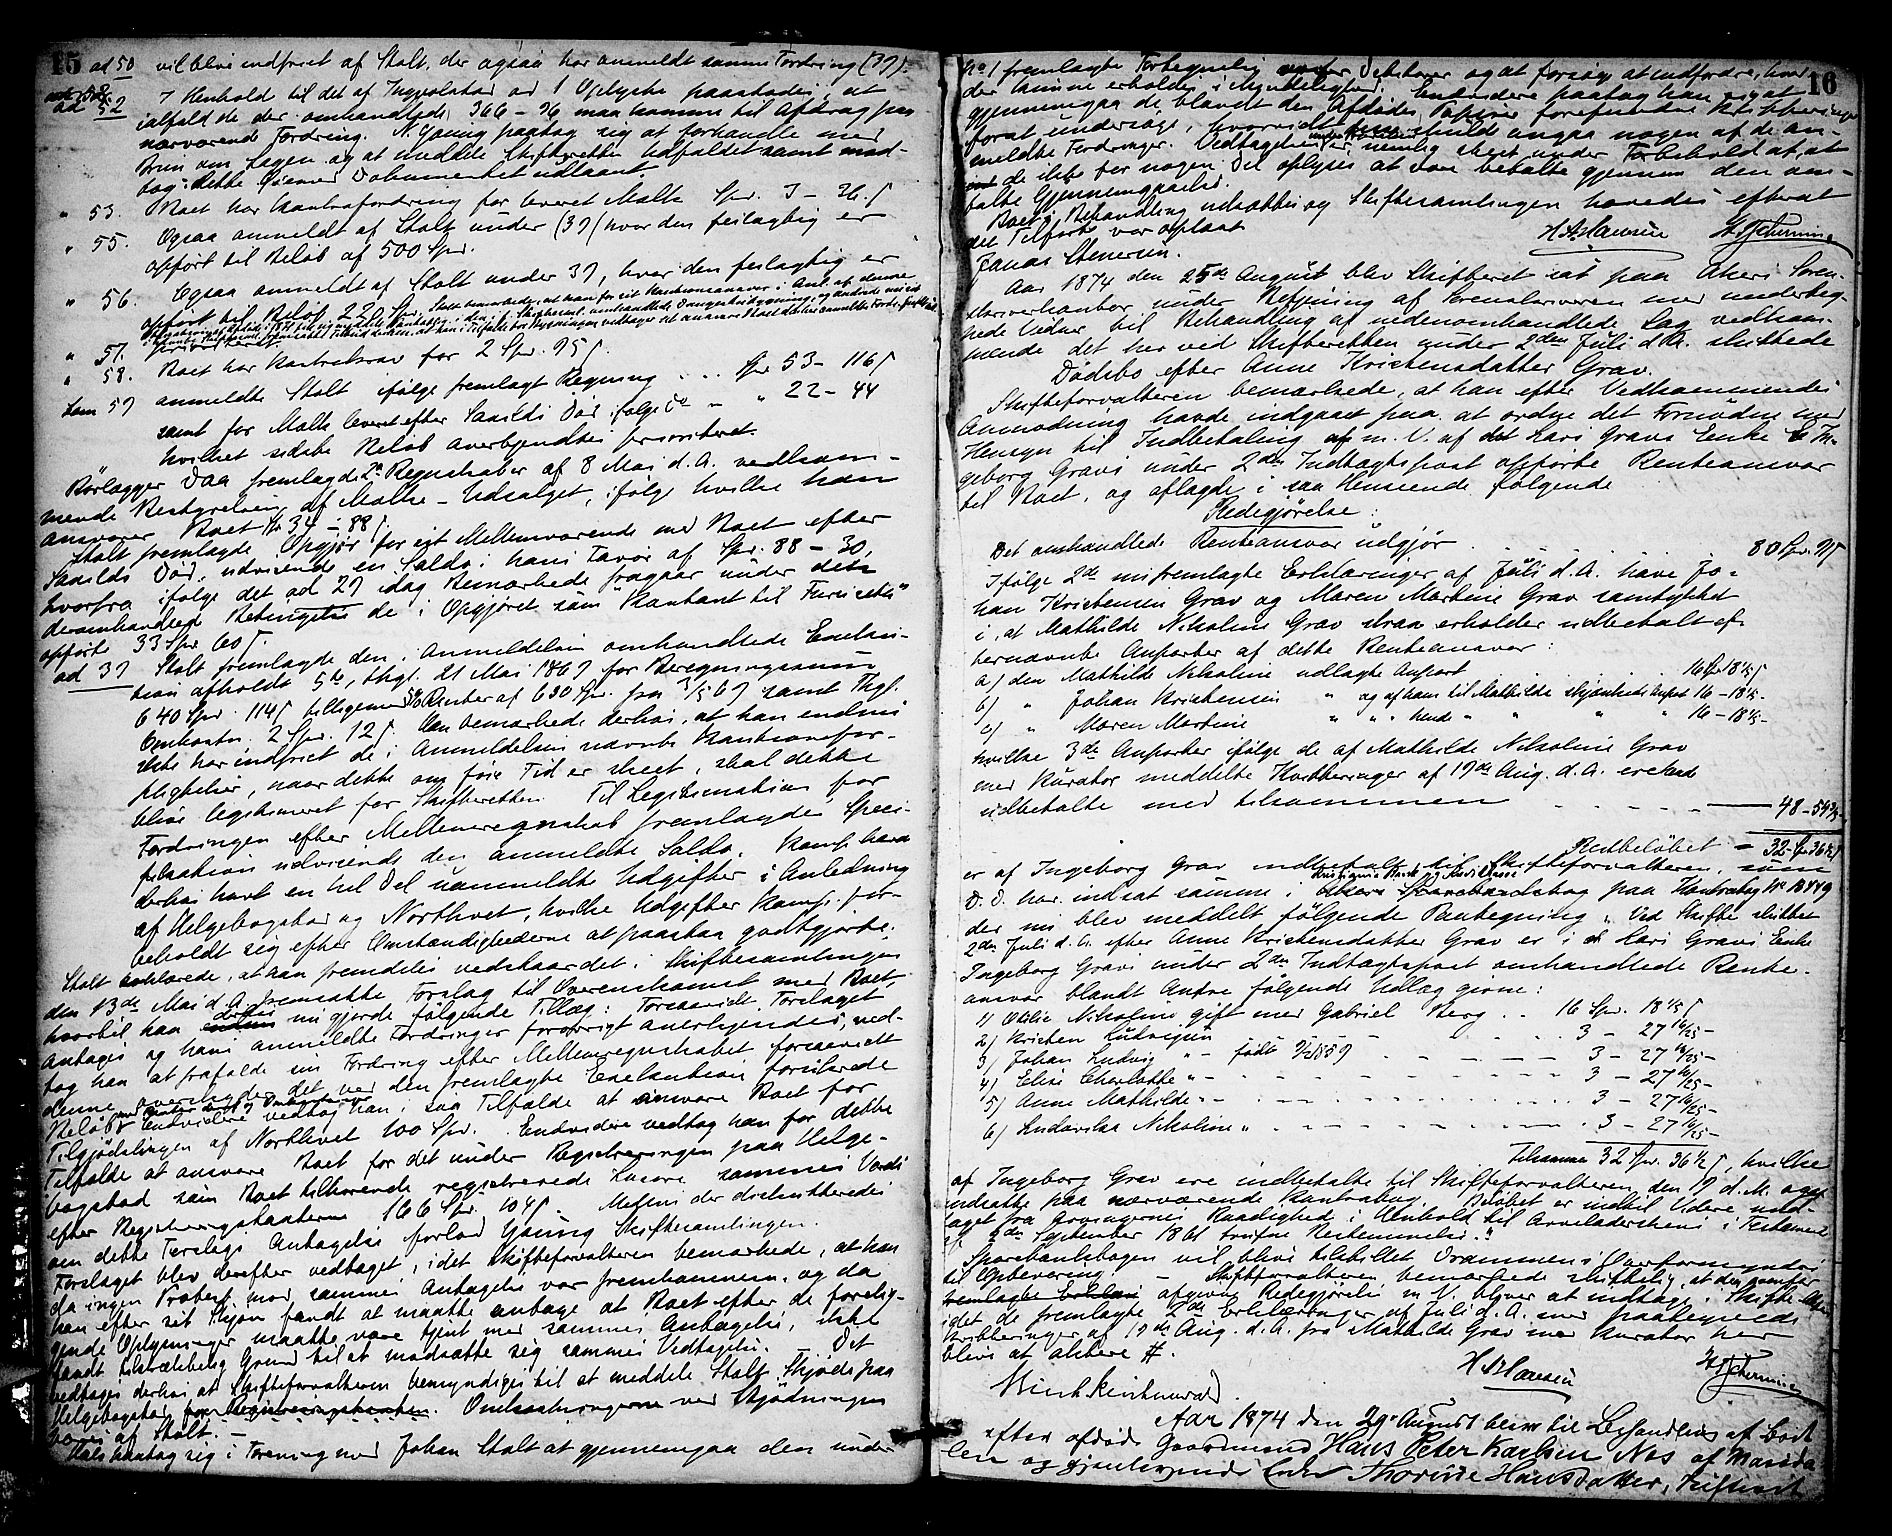 15
ad 50 vil blive indfriet af Stolt, der ogsaa har anmeldt samme Fordring (37).
ad 52 I Henhold til det af Ingvolstad ad 1 Oplyste paastodes, at
ialfald de der omhandlede 366 - 96 maa komme til Afdrag paa
nærværende Fordring. N. Young paatog sig at forhandle med
Brun om Sagen og at meddele Skifteretten Udfaldet samt mod-
tog i dette Øiemed Dokumentet udlaant.
" 53. Boet har Kontrafordring for leveret Malt Spr. 7 - 26 β
" 55. Ogsaa anmeldt af Stolt under (37) hvor den feilagtig er
opført til Beløb af 500 Spr.
" 56. Ogsaa anmeldt af Stolt under 37, hvor den feilagtig er
opført til Beløb 220 Spr.
" 57. frafaldt
" 58. Boet har Kontrakrav for 2 Spr. 95 β.
Som 59 anmeldte Stolt ifølge fremlagt Regning . . . Spr 53 - 116 β
samt for Malt leveret efter Saxilds Død ifølge do - " 22 - 44
hvilket sidste Beløb anerkjendtes prioriteret.
Børlogger Daa fremlagde 2de Regnskaber af 8 Mai d. A. vedkom-
mende Bestyrelsen af Malt-Udsalget, ifølge hvilke han
ansvarer Boet Spr 34 - 88 β.
Stolt fremlagde Opgjør for sit Mellemværende med Boet efter
Saxilds Død, udvisende en Saldo i hans Favør af Spr. 88 - 30,
hvorfra ifølge det ad 27 idag Bemærkede fragaar under den
deromhandlede Betingelse de i Opgjøret som "Kontant til Furuseth"
opførte 33 Spr 60 β.
ad 37 Stolt fremlagde den i Anmeldelsen omhandlede Exeku-
tion afholdt 5te, thgl. 21 Mai 1869 for Beregningssum
640 Spr. 114 β tilligemed 5% Renter af 630 Spr. fra 5/5 69 samt Thgl.
Omkostn. 2 Spr. 12 β. Han bemærkede derhos, at han endnu
ikke har indfriet de i Anmeldelsen nævnte Kautionsfor-
pligtelser, naar dette om føie Tid er skeet, skal dette
blive legitimeret for Skifteretten. Til Legitimation for
Fordringen efter Mellemregnskab fremlagdes Speci-
fikation udvisende den anmeldte Saldo. Komp. havde
derhos havt en hel Del uanmeldte Udgifter i Anledning
af Helgebogstad og Northvet, hvilke Udgifter Komp. for-
beholdt sig efter Omstændighederne at paastaa godtgjorte.
Stolt erklærede, at han fremdeles vedstaar det i Skiftesamlingen
den 13de Mai d. A. fremsatte Forslag til Overenskomst med Boet,
hvortil han derhos nu gjorde følgende Tillæg: Forsaavidt Forslaget
antages og hans anmeldte Fordringer forøvrigt anerkjendes, ved-
tog han at frafalde sin Fordring efter Mellemregnskabet forsaavidt
denne overstiger det ved den fremlagte Exekution forsikrede
Beløb med Renter og Omkostninger. Endvidere vedtog han i saa Tilfælde at ansvare Boet for
Tilgjødslingen af Northvet 100 Spr. Endvidere vedtog han for dette
Tilfælde at ansvare Boet for det under Registreringen paa Helge-
bogstad som Boet tilhørende registrerede Løsøre sammes Værdi
efter Registreringstaxterne 166 Spr. 104 β. Medens der diskutteredes
om dette Forslags Antagelse forlod Young Skiftesamlingen.
Forslaget blev derefter vedtaget, idet Skifteforvalteren bemærkede, at han
da ingen Protest mod sammes Antagelse var fremkommen, og da
han efter sit Skjøn fandt at maatte antage at Boet efter de forelig-
gende Oplysninger maatte være tjent med sammes Antagelse, ikke
fandt tilstrækkelig Grund til at modsætte sig sammes Vedtagelse. Det
vedtoges derhos at Skifteforvalteren bemyndiges til at meddele Stolt Skjøde paa
Helgebogstad for Registreringstaxten. Omkostningerne ved Skjødningen
bæres af Stolt. -
Hals paatog sig i Forening med Johan Stolt at gjennemgaa den under
16
No 1 fremlagte Fortegnelse over Debitorer og at forsøge at indfordre, hvad
der kunne erholdes i Mindelighed. Endvidere paatog han sig at
gjennemgaa de blandt den Afdødes Papirer forefundne Kvitteringer
forat undersøge, hvorvidt disse skulde angaa nogen af de an-
meldte Fordringer. Vedtagelsen er nemlig skeet under Forbehold af, at
de ikke for nogen Del oplyses at være betalte gjennem den om-
talte Gjennemgaaelse.
Boets Behandling udsattes og Skiftesamlingen hævedes efterat
det Tilførte var oplæst
Jonas Stenersen. H A Hansen H Schermin
Aar 1874 den 25de August blev Skifteret sat paa Akers Soren-
skriverkontor under Betjening af Sorenskriveren med underteg-
nede Vidner til Behandling af nedenomhandlede Sag vedkom-
mende det her ved Skifteretten under 2den Juli d A. sluttede
Dødsbo efter Anne Kristensdatter Grav.
Skifteforvalteren bemærkede, at han efter Vedkommendes
Anmodning havde indgaaet paa at ordne det Fornødne med
Hensyn til Indbetaling m. V. af det Lars Gravs Enke In-
geborg Gravs under 2den Indtægtspost opførte Renteansvar
til Boet, og aflagde i saa Henseende følgende
Redegjørelse:
Det omhandlede Renteansvar udgjør . . . . 80 Spr. 97 β
Ifølge 2de nu fremlagte Erklæringer af Juli d. A. have Jo-
han Kristensen Grav og Maren Martine Grav samtykket
i, at Mathilde Nikoline Grav strax erholder udbetalt ef-
ternævnte Anparter af dette Renteansvar:
a) den Mathilde Nikoline udlagte Anpart 16 Spr 18 1/5 β
b) " Johan Kristensen " og af ham til Mathilde skjænkede Anpart 16 - 18 1/5 -
c) " Maren Martine " " " hende " " " " 16 - 18 1/5 -
hvilke 3de Anparter ifølge de af Mathilde Nikoline Grav
med Kurator meddelte Kvitteringer af 19de Aug. d. A. ere
udbetalte med tilsammen - - - - 48 - 54 3/5 -
Restbeløbet - 32 Spr 36 1/2 β
er af Ingeborg Grav indbetalt til Skifteforvalteren, som
D. D. har indsat samme i Kristiania Bank og Kreditkasse paa Kontrabog No 18449
der nu blev meddelt følgende Paategning "Ved Skifte sluttet
2den Juli d. A. efter Anne Kristensdatter Grav er i Lars Gravs Enke
Ingeborg Gravs under 2den Indtægtspost omhandlede Rente-
ansvar blandt Andre følgende Udlæg givne:
1) Otilie Nikoline gift med Gabriel Berg . . 16 Spr. 18 1/5 β
2) Kristen Ludvigsen - - - . . . . 3 - 27 16/25 -
3) Johan Ludvig " - født 9/2 1859 - - - - 3 - 27 16/25 -
4) Elise Charlotte " - - - - - - - 3 - 27 16/25 -
5) Anne Mathilde " - - . . . . . 3 - 27 16/25 -
6) Ludovika Nikoline " - - - - - - . 3 - 27 16/25 -
Tilsammen 32 Spr. 36 1/2 β, hvilke
af Ingeborg Grav ere indbetalte til Skifteforvalteren den 19 d. M. og
indsatte paa nærværende Kontrabog. Beløbet er indtil Videre und-
draget fra Arvingernes Raadighed i Henhold til Arveladerskens i Testament
af 2den September 1861 trufne Bestemmelse."
Sparebankbogen vil blive tilstillet Drammens Overformynderi
til Opbevaring. - Skifteforvalteren bemærkede sluttelig, at den ovenfor
afgivne Redegjørelse m. V. bliver at indtage i Skifte-Akten
idet de fremlagte 2de Erklæringer af Juli d. A. med paategnede
Kvitteringer af 19de Aug. d. A. fra Mathilde Grav med Kurator her
blive at aktere #.
H A Hansen H Schermin
Aar 1874 den 29de August blev til Behandling af Boet
efter afdøde Gaardmand Hans Peter Karlsen Nos af Marida-
len og gjenlevende Enke Thorine Hansdatter, Skifteret